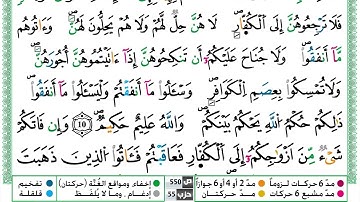 فَلَا تَرْجِعُوهُنَّ إِلَى ٱلْكُفَّارِ ۖ لَا هُنَّ حِلٌّ لَّهُمْ وَلَا هُمْ يَحِلُّونَ لَهُنَّ ۖ وَءَاتُوهُم
مَّآ أَنفَقُوا۟ ۚ وَلَا جُنَاحَ عَلَيْكُمُۥٓ أَن تَنكِحُوهُنَّ إِذَآ ءَاتَيْتُمُوهُنَّ أُجُورَهُنَّ ۚ
وَلَا تُمْسِكُوا۟ بِعِصَمِ ٱلْكَوَافِرِ ۖ وَسْـَٔلُوا۟ مَآ أَنفَقْتُمْ وَلْيَسْـَٔلُوا۟ مَآ أَنفَقُوا۟ ۚ
ذَٰلِكُمْ حُكْمُ ٱللَّهِ يَحْكُمُ بَيْنَكُمْ ۖ وَٱللَّهُ عَلِيمٌ حَكِيمٌ ۝١٠ وَإِن فَاتَكُمْ
شَىْءٌ مِّنْ أَزْوَٰجِكُمُۥٓ إِلَى ٱلْكُفَّارِ فَعَاقَبْتُمْ فَـَٔاتُوا۟ ٱلَّذِينَ ذَهَبَتَ
مدّ 6 حركات لزوماً مدّ 2 أو 4 أو 6 جوازاً ص 550 إخفاء، ومواقع الغُنَّة (حركتان) تفخيم
مدّ مشبع 6 حركات مدّ حركتان حزب 55 إدغام، وما لا يُلفَظ قلقلة